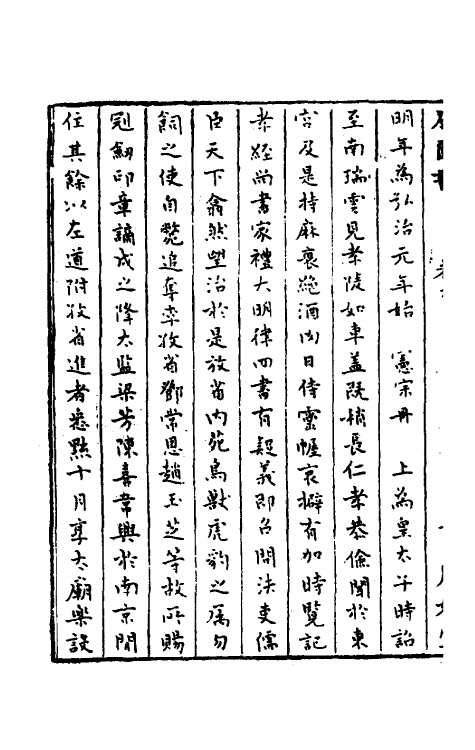 明年為弘治元年始　憲宗冊　上為皇太子時詔
至南瑞雲見孝陵如車蓋既稍長仁孝恭儉聞於東
宮及是持麻衰絕酒肉日侍靈幄哀擗有加時覽記
孝經尚書家禮大明律四書有疑義即召問法吏儒
臣天下翕然望治於是放省內苑鳥獸虎豹之屬勿
飼之使自斃追奪李孜省鄧常思趙玉芝等故所賜
冠劒印章謫戍之降太監梁芳陳喜韋興於南京閒
住其餘以左道附孜省進者悉黜十月享太廟樂設